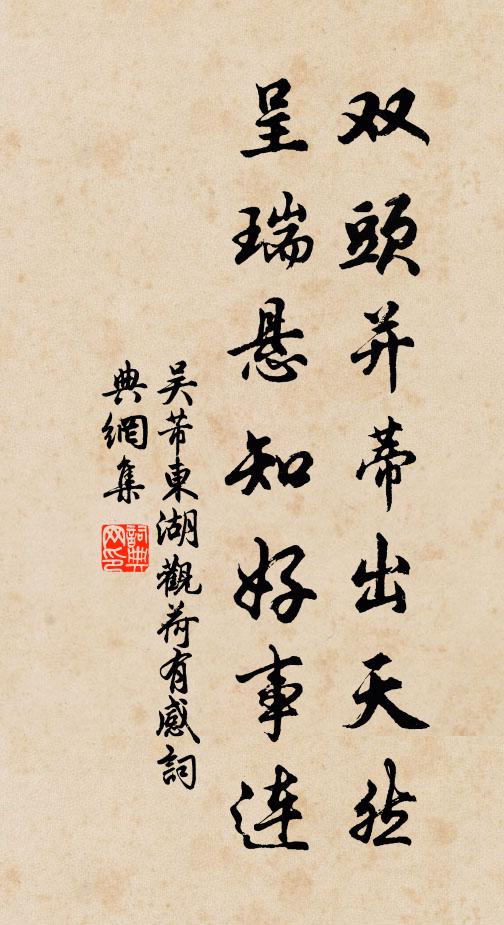 双頭并蒂出天然
呈瑞悬知好事連
吴芾東湖觀荷有感詞
典網集
詞典
网印